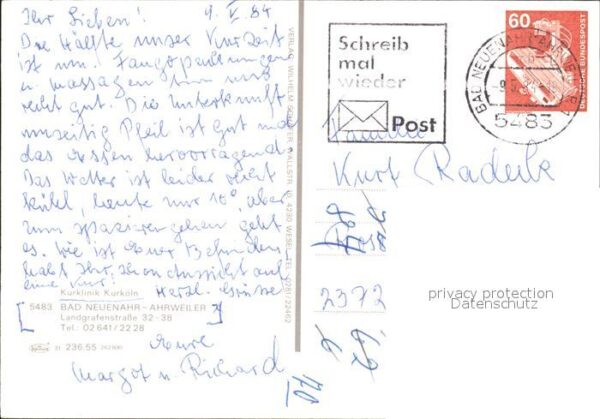 Ihr Lieben! 9. V. 84
Die Hälfte unser Kurzeit
ist um. Fangopackungen
u. Massagen tun uns
recht gut. Die Unterkunft
Pfeil ist gut und
das Essen hervorragend.
Das Wetter ist leider recht
kühl, heute nur 10°, aber
zum spazierengehen geht
es. Wie ist Euer Befinden
habt Ihr schon Aussicht auf
eine Kur?
Herzl. Grüsse
Kurklinik Kurköln
5483 BAD NEUENAHR - AHRWEILER
Landgrafenstraße 32-38
Tel.: 02641/2228
21 236.55
Eure
Margot u. Richard
VERLAG WILHELM 4230 WESEL, TEL. 0281/22462
Schreib
mal
wieder
Post
BAD NEUENAHR-AHRWEILER
5483
60
DEUTSCHE BUNDESPOST
Familie
Kurt
2372
privacy protection
Datenschutz